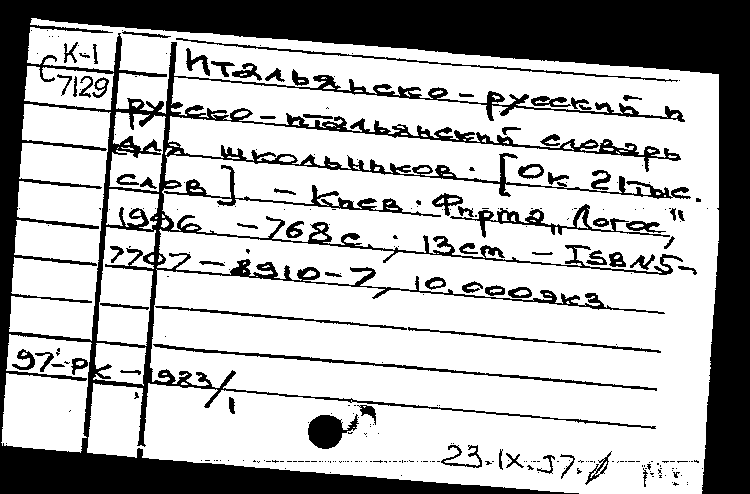 К-1
С 7129
Итальянско-русский и
русско-итальянский словарь
для школьников. [Ок 21 тыс.
слов]. - Киев: Фирма „Логос",
1996. - 768 с.; 13 ст. - ISBN 5-
7707-8910-7, 10.000 экз.
97-РК-1983/1
23.IX.97.